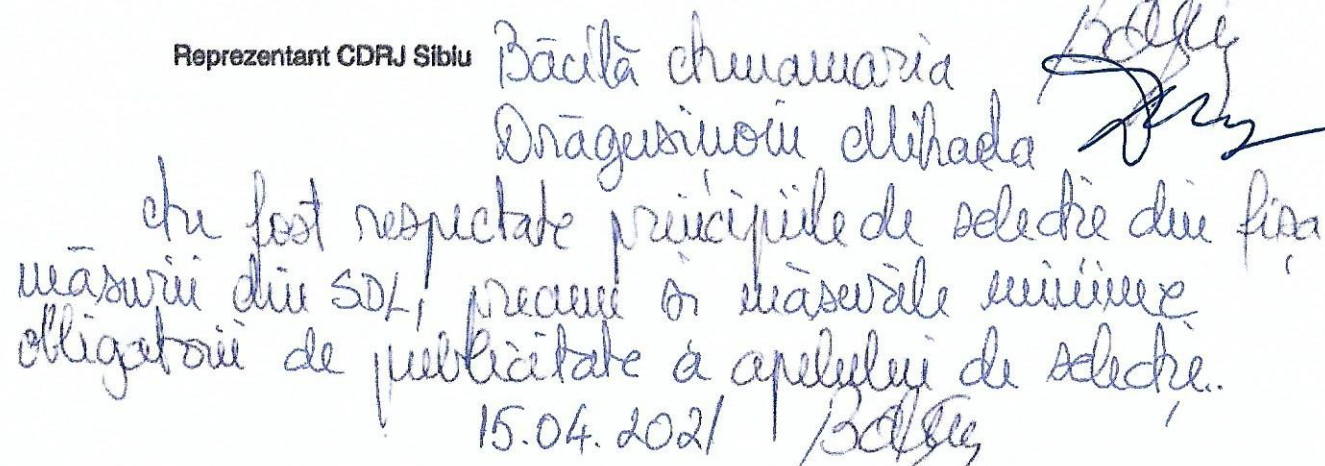 Reprezentant CDRJ Sibiu Băcilă Anamaria
Drăgușinoiu Mihaela
Au fost respectate principiile de selecție din fișa
măsurii din SDL, precum și măsurile minime
obligatorii de publicitate a apelului de selecție.
15.04.2021